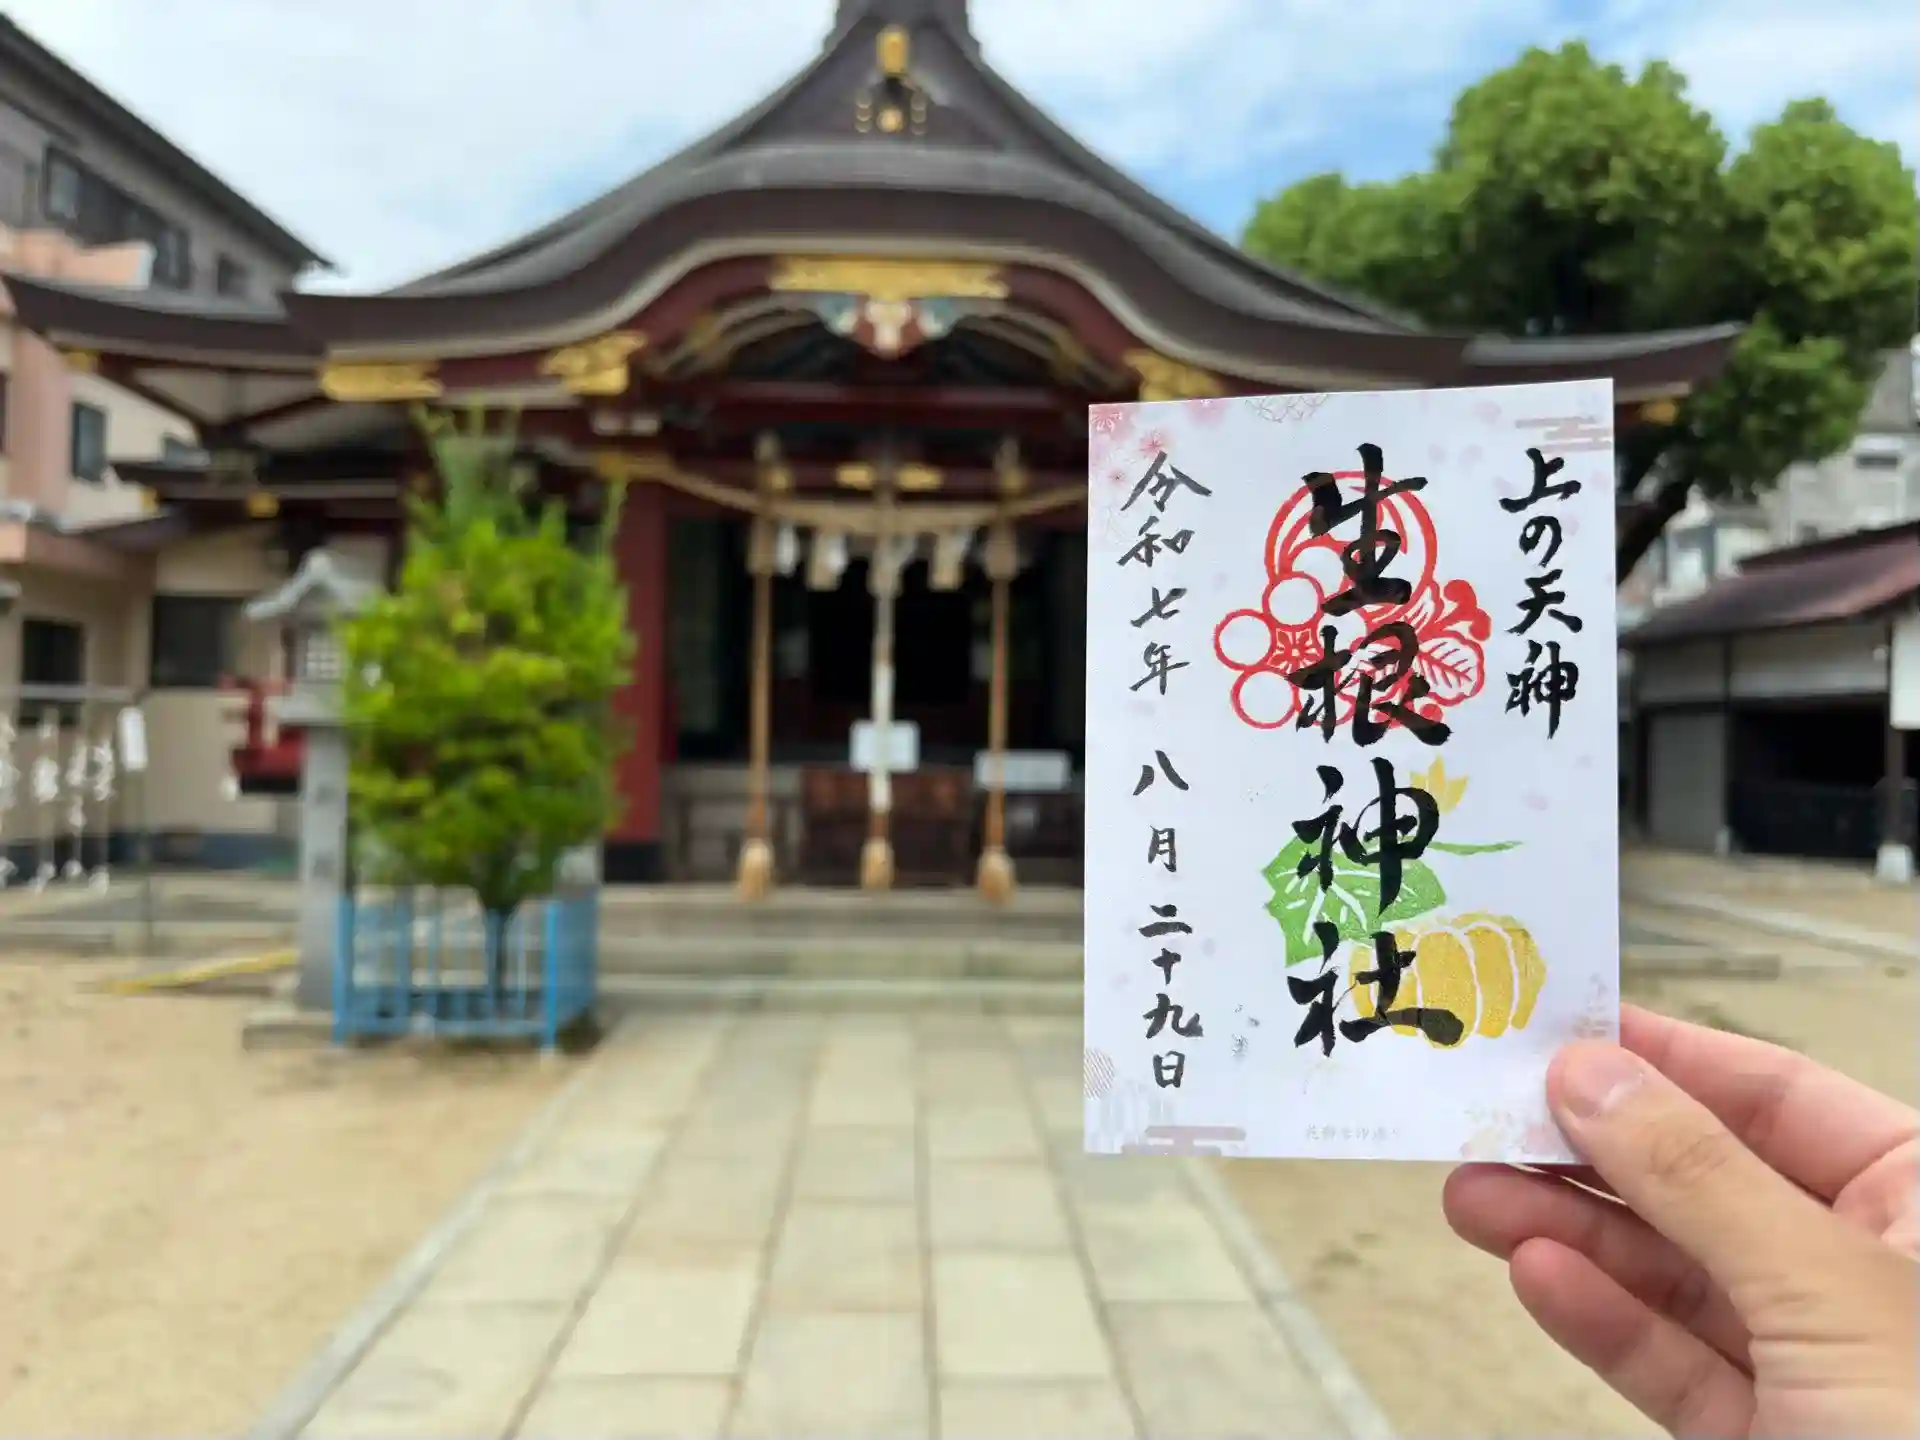 上の天神
生根神社
令和七年 八月 二十九日